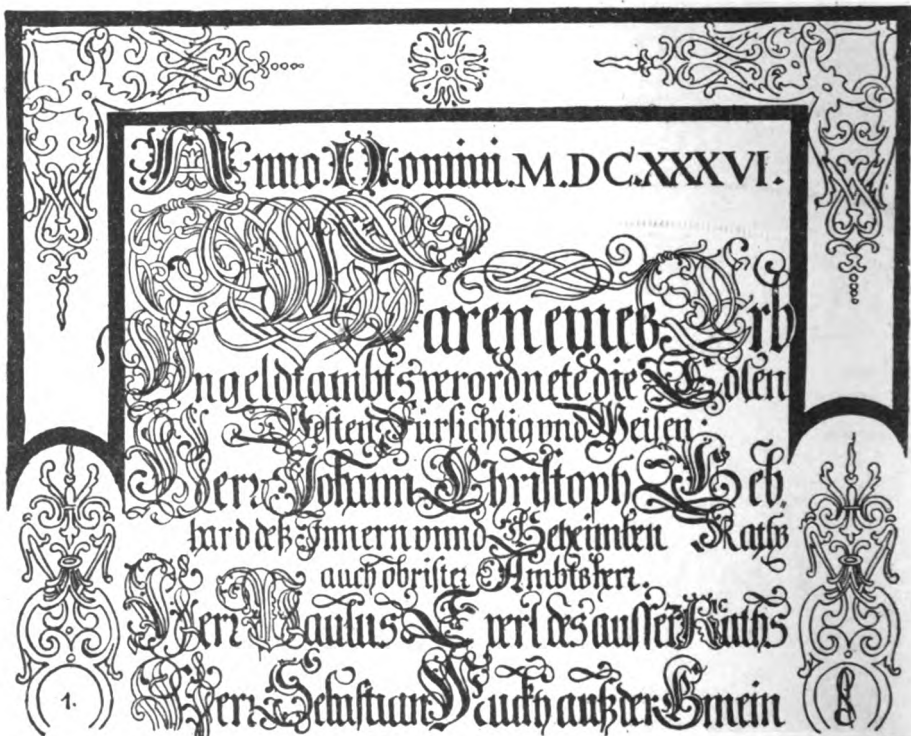 Anno Domini. M.DC.XXXVI.
Waren eines Erb
Ungeldtambts verordnete die Edlen
Vesten Fürsichtig vnd Weisen.
Herr Johann Christoph Geb
hard deß Innern vnnd Geheimben Raths
auch obrister Ambtsherr.
Herr Paulus des ausser Raths
Herr auß der Gmein
1.